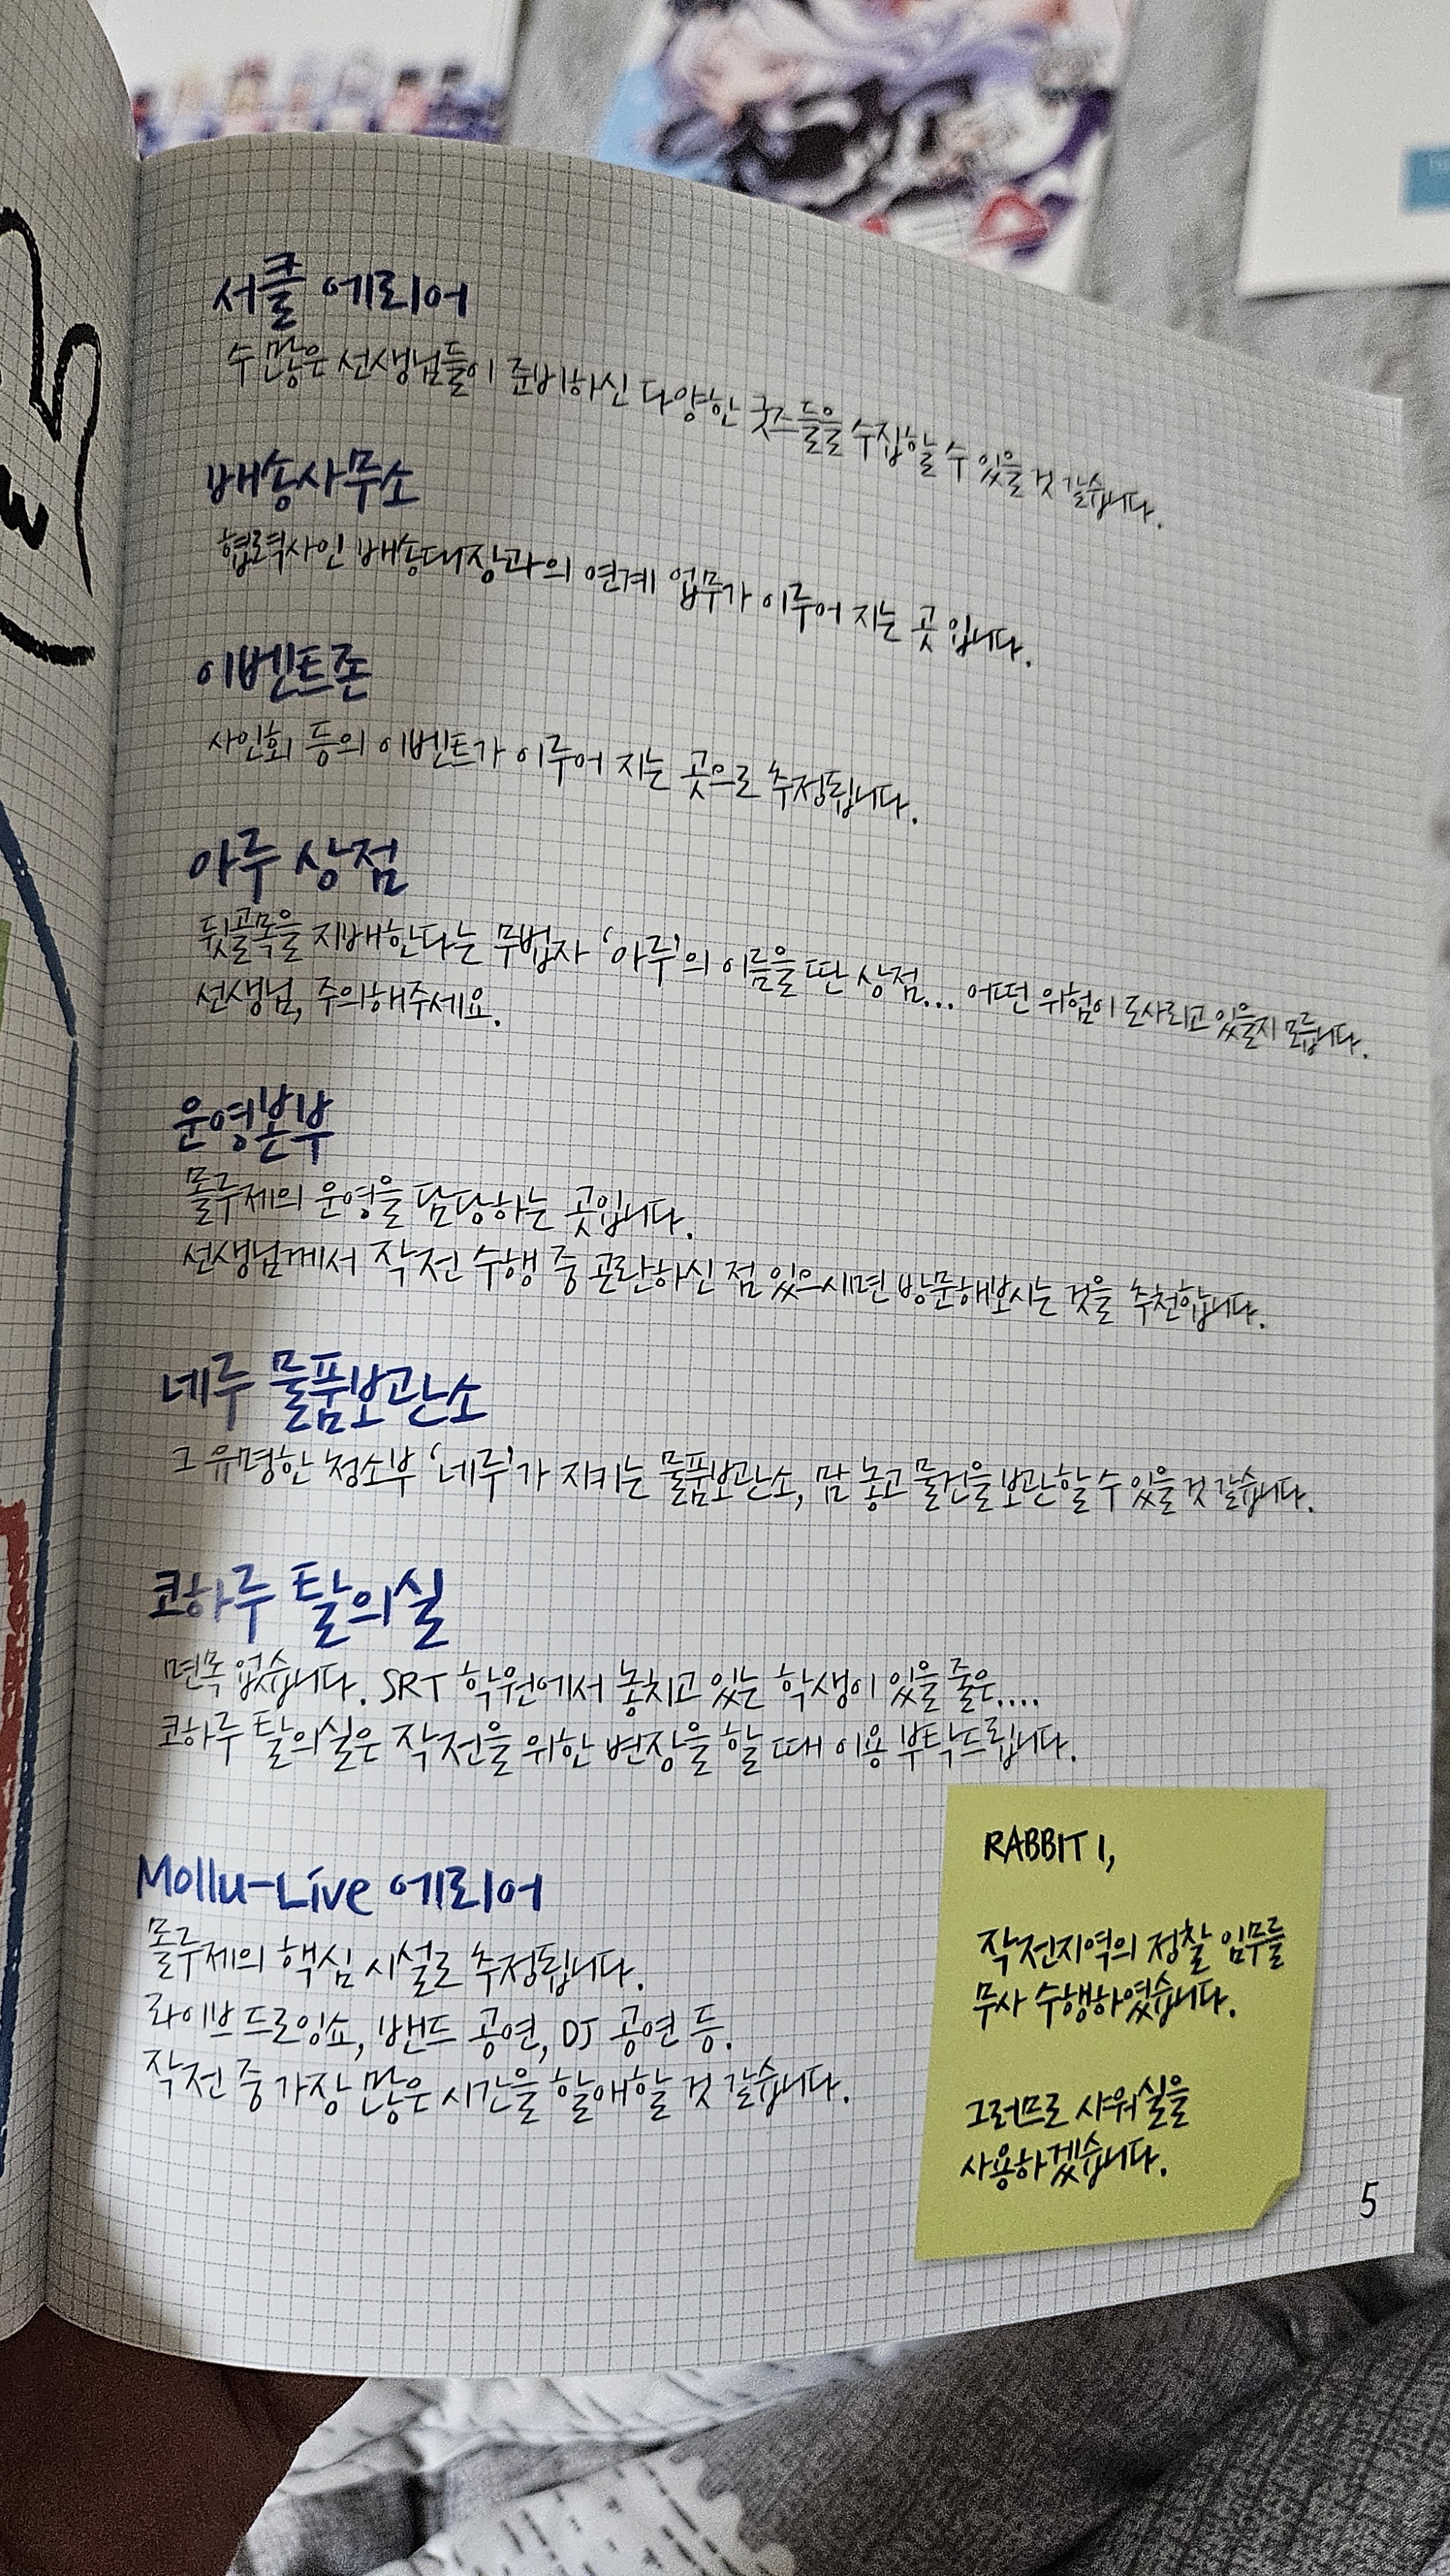 서클 에리어
수 많은 선생님들이 준비하신 다양한 굿즈들을 수집할 수 있을 것 같습니다.
배송사무소
협력사인 배송대장과의 연계 업무가 이루어 지는 곳 입니다.
이벤트존
사인회 등의 이벤트가 이루어 지는 곳으로 추정됩니다.
아루 상점
뒷골목을 지배한다는 무법자 '아루'의 이름을 딴 상점... 어떤 위험이 도사리고 있을지 모릅니다.
선생님, 주의해주세요.
운영본부
몰루제의 운영을 담당하는 곳입니다.
선생님께서 작전 수행 중 곤란하신 점 있으시면 방문해보시는 것을 추천합니다.
네루 물품보관소
그 유명한 청소부 '네루'가 지키는 물품보관소, 맘 놓고 물건을 보관할 수 있을 것 같습니다.
코하루 탈의실
면목 없습니다. SRT 학원에서 놓치고 있는 학생이 있을 줄은....
코하루 탈의실은 작전을 위한 변장을 할 때 이용 부탁드립니다.
Mollu-Live 에리어
몰루제의 핵심 시설로 추정됩니다.
라이브 드로잉쇼, 밴드 공연, DJ 공연 등.
작전 중 가장 많은 시간을 할애할 것 같습니다.
RABBIT 1,
작전지역의 정찰 임무를
무사 수행하였습니다.
그러므로 샤워실을
사용하겠습니다.
5